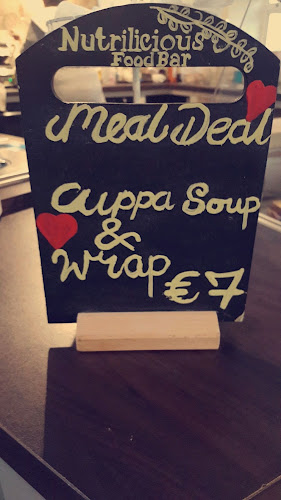 Nutrilicious
Food Bar
Meal Deal
Cuppa Soup
&
Wrap
€7